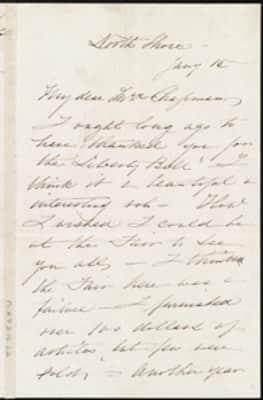 North Shore -
Jany 12
My dear Mrs Chapman,
I ought long ago to
have thanked you for
the Liberty Bell. I
think it a beautiful &
interesting vol - How
I wished I could be
at the Fair to see
you all, - I think
the Fair here was a
failure - I furnished
over 100 dollars of
articles, but few were
sold, - Another year